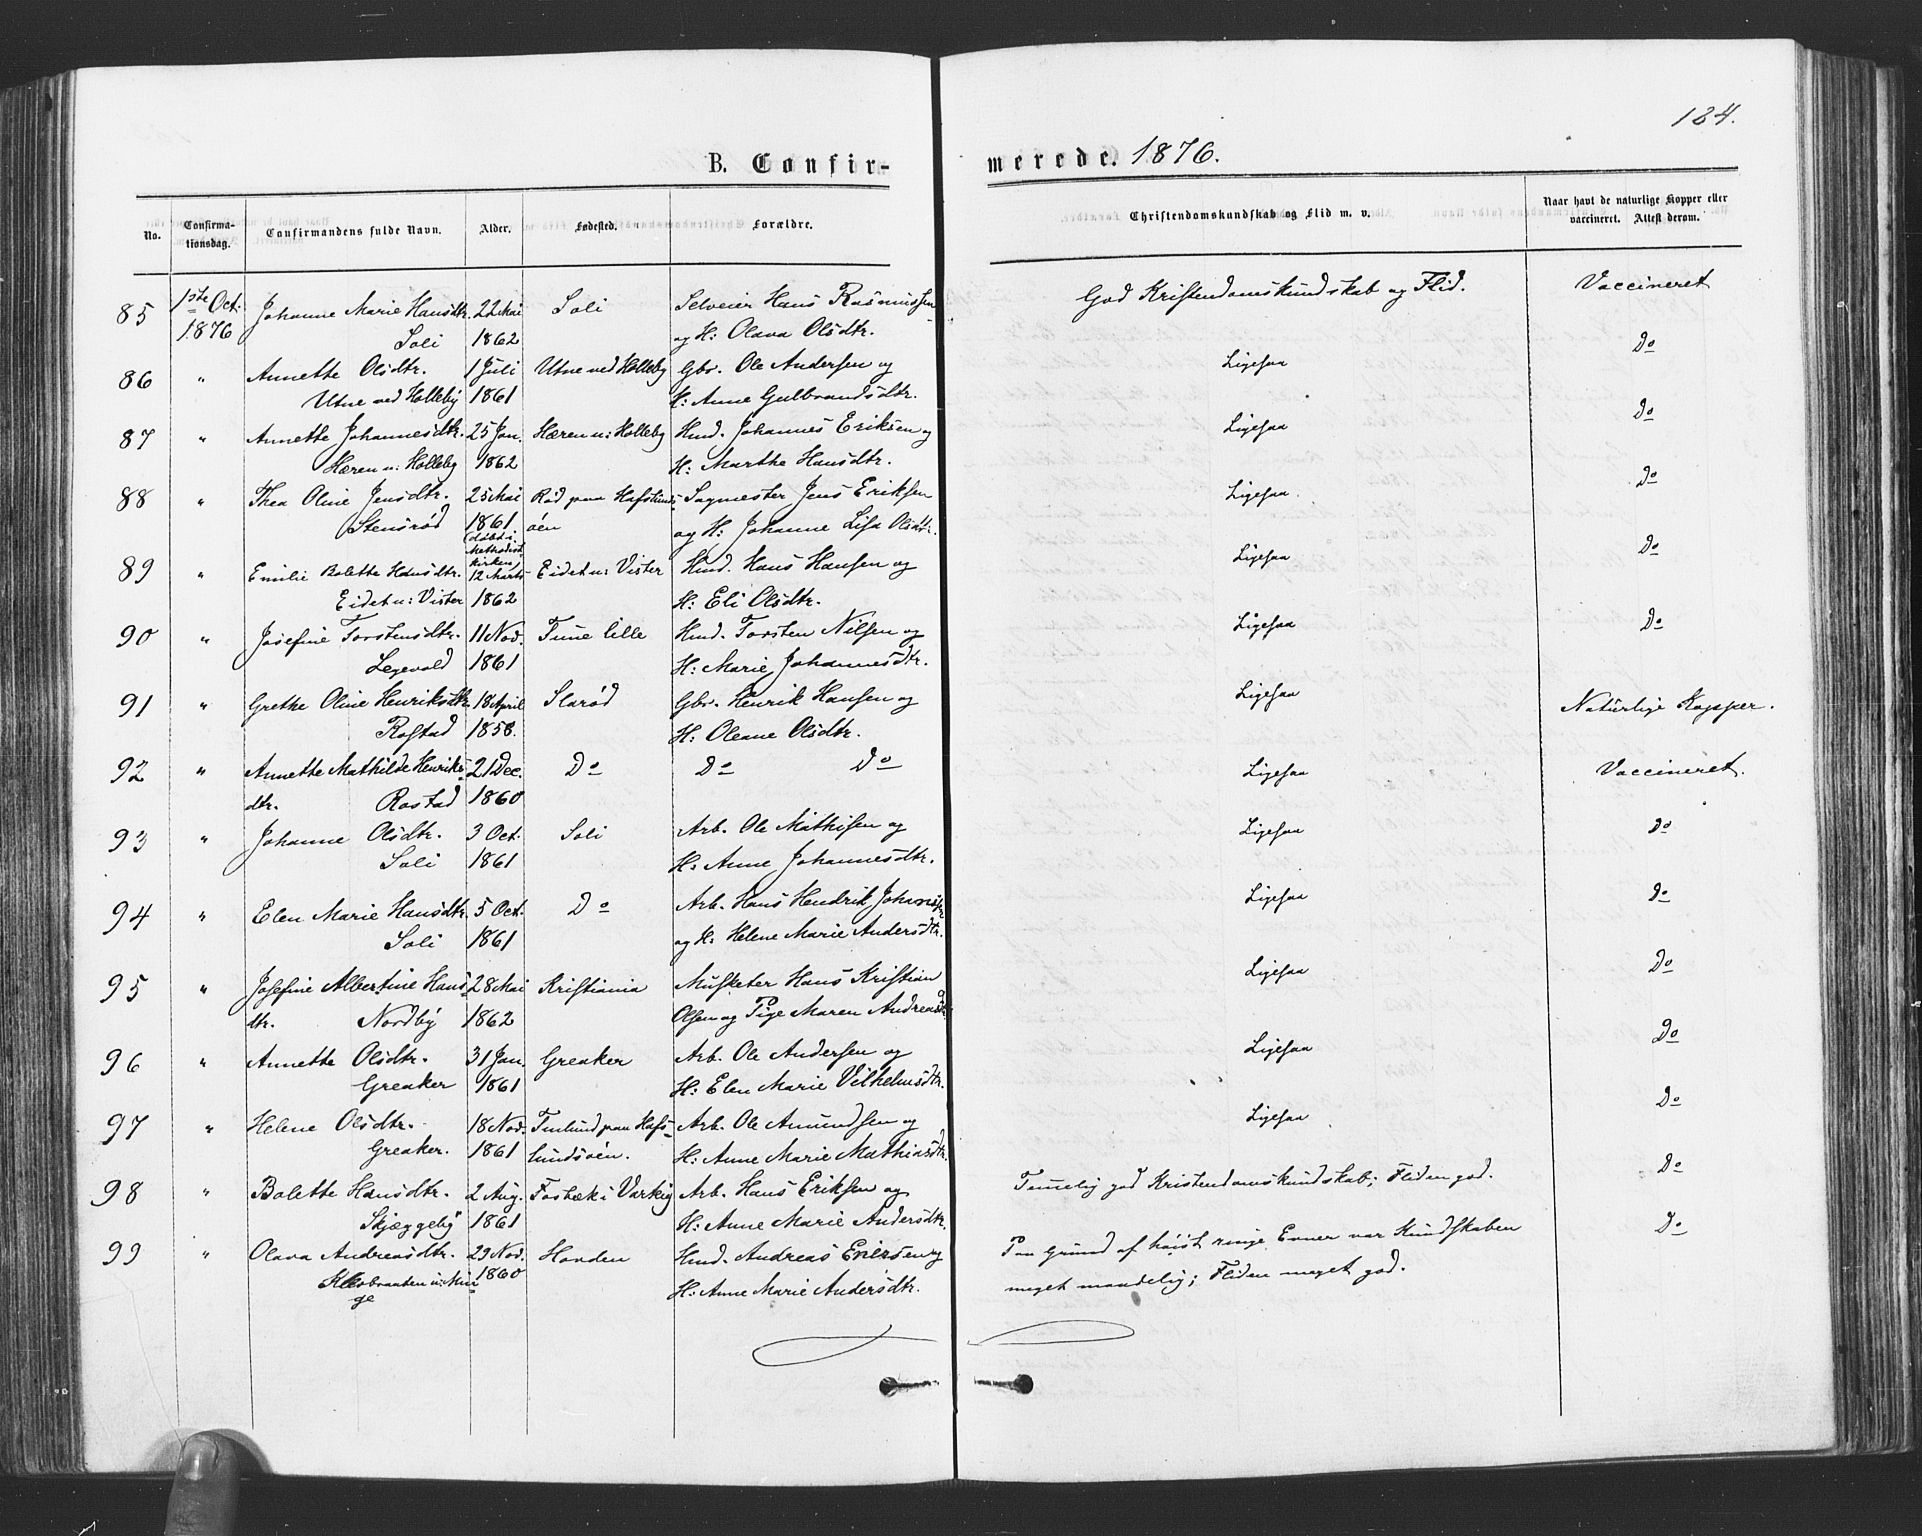 184.
B. Confirmerede. 1876.
No. Confirmationsdag. Confirmandens fulde Navn. Alder. Fødested. Forældre. Christendomskundskab og Flid m. v. Naar havt de naturlige Kopper eller vaccineret. Attest derom.
85 1ste Oct. Johanne Marie Hansdtr. 22 Mai Soli Selveier Hans Rasmussen God Kristendomskundskab og Flid. Vaccineret
1876 Soli 1862 og H: Olava Olsdtr.
86 " Annette Olsdtr. 1 Juli Utne ved Holleby Gbr. Ole Andersen og Ligesaa Do
Utne ved Holleby 1861 H: Anne Gulbrandsdtr.
87 " Annette Johannesdtr. 25 Jan. Hæren u: Holleby Hmd. Johannes Eriksen og Ligesaa Do
Hæren u: Holleby 1862 H: Marthe Hansdtr.
88 " Thea Oline Jensdtr. 25 Mai Rød paa Hafslunds- Sagmester Jens Eriksen Ligesaa. Do
Stensrød 1861 øen og H: Johanne Lisa Olsdtr.
(døbt i
Methodist
kirken)
89 " Emilie Bolette Hansdtr. 12 Marts Eidet u: Vister Hmd. Hans Hansen og Ligesaa Do
Eidet u: Vister 1862 H: Eli Olsdtr.
90 " Josefine Torstensdtr. 11 Nov. Tune lille Hmd. Torsten Nilsen og Ligesaa Do
Legevold 1861 H: Marie Johannesdtr.
91 " Grethe Oline Henriksdtr. 18 April Slarød Gbr. Henrik Hansen og Ligesaa Naturlige Kopper.
Rostad 1858. H: Oleane Olsdtr.
92 " Annette Mathilde Henriks- 21 Dec. Do Do Do Ligesaa Vaccineret.
dtr. Rostad 1860
93 " Johanne Olsdtr. 3 Oct. Soli Arb. Ole Mathisen og Ligesaa Do
Soli 1861 H: Anne Johannesdtr.
94 " Elen Marie Hansdtr. 5 Oct. Do Arb. Hans Hendrik Ligesaa Do
Soli 1861 og H: Helene Marie Andersdtr.
95 " Josefine Albertine Hans- 28 Mai Kristiania Musketer Hans Kristian Ligesaa Do
dtr. Nordby 1862 Olsen og Pige Maren
96 " Annette Olsdtr. 31 Jan. Greaker Arb. Ole Andersen og Ligesaa Do
Greaker 1861 H: Elen Marie Vilhelmsdtr.
97 " Helene Olsdtr. 18 Nov. Tunlund paa Hafs- Arb. Ole Amundsen og Ligesaa Do
Greaker. 1861 lundsøen. H: Anne Marie Mathiasdtr.
98 " Bolette Hansdtr. 2 Aug. Fosbæk i Varteig Arb. Hans Eriksen og Temmelig god Kristendomskundskab; Fliden god. Do
Skjæggeby 1861 H: Anne Marie Andersdtr.
99 " Olava Andreasdtr. 29 Nov. Hovden Hmd. Andreas og Paa Grund af høist ringe Evner var Kundskaben Do
u: Min- 1860 H: Anne Marie Andersdtr. meget maadelig; Fliden meget god.
ge